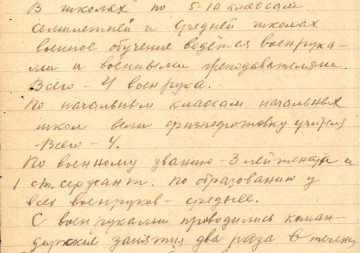 В школах по 5-10 классам
семилетней и средней школах
военное обучение ведётся военрука-
ми и военными преподавателями.
Всего - 4 военрука.
По начальным классам начальных
школ вели физподготовку учителя
Всего - 4.
По военному званию - 3 лейтенанта и
1 ст. сержант. По образованию у
всех военруков - среднее.
С военруками проводились коман-
дирские занятия два раза в течении